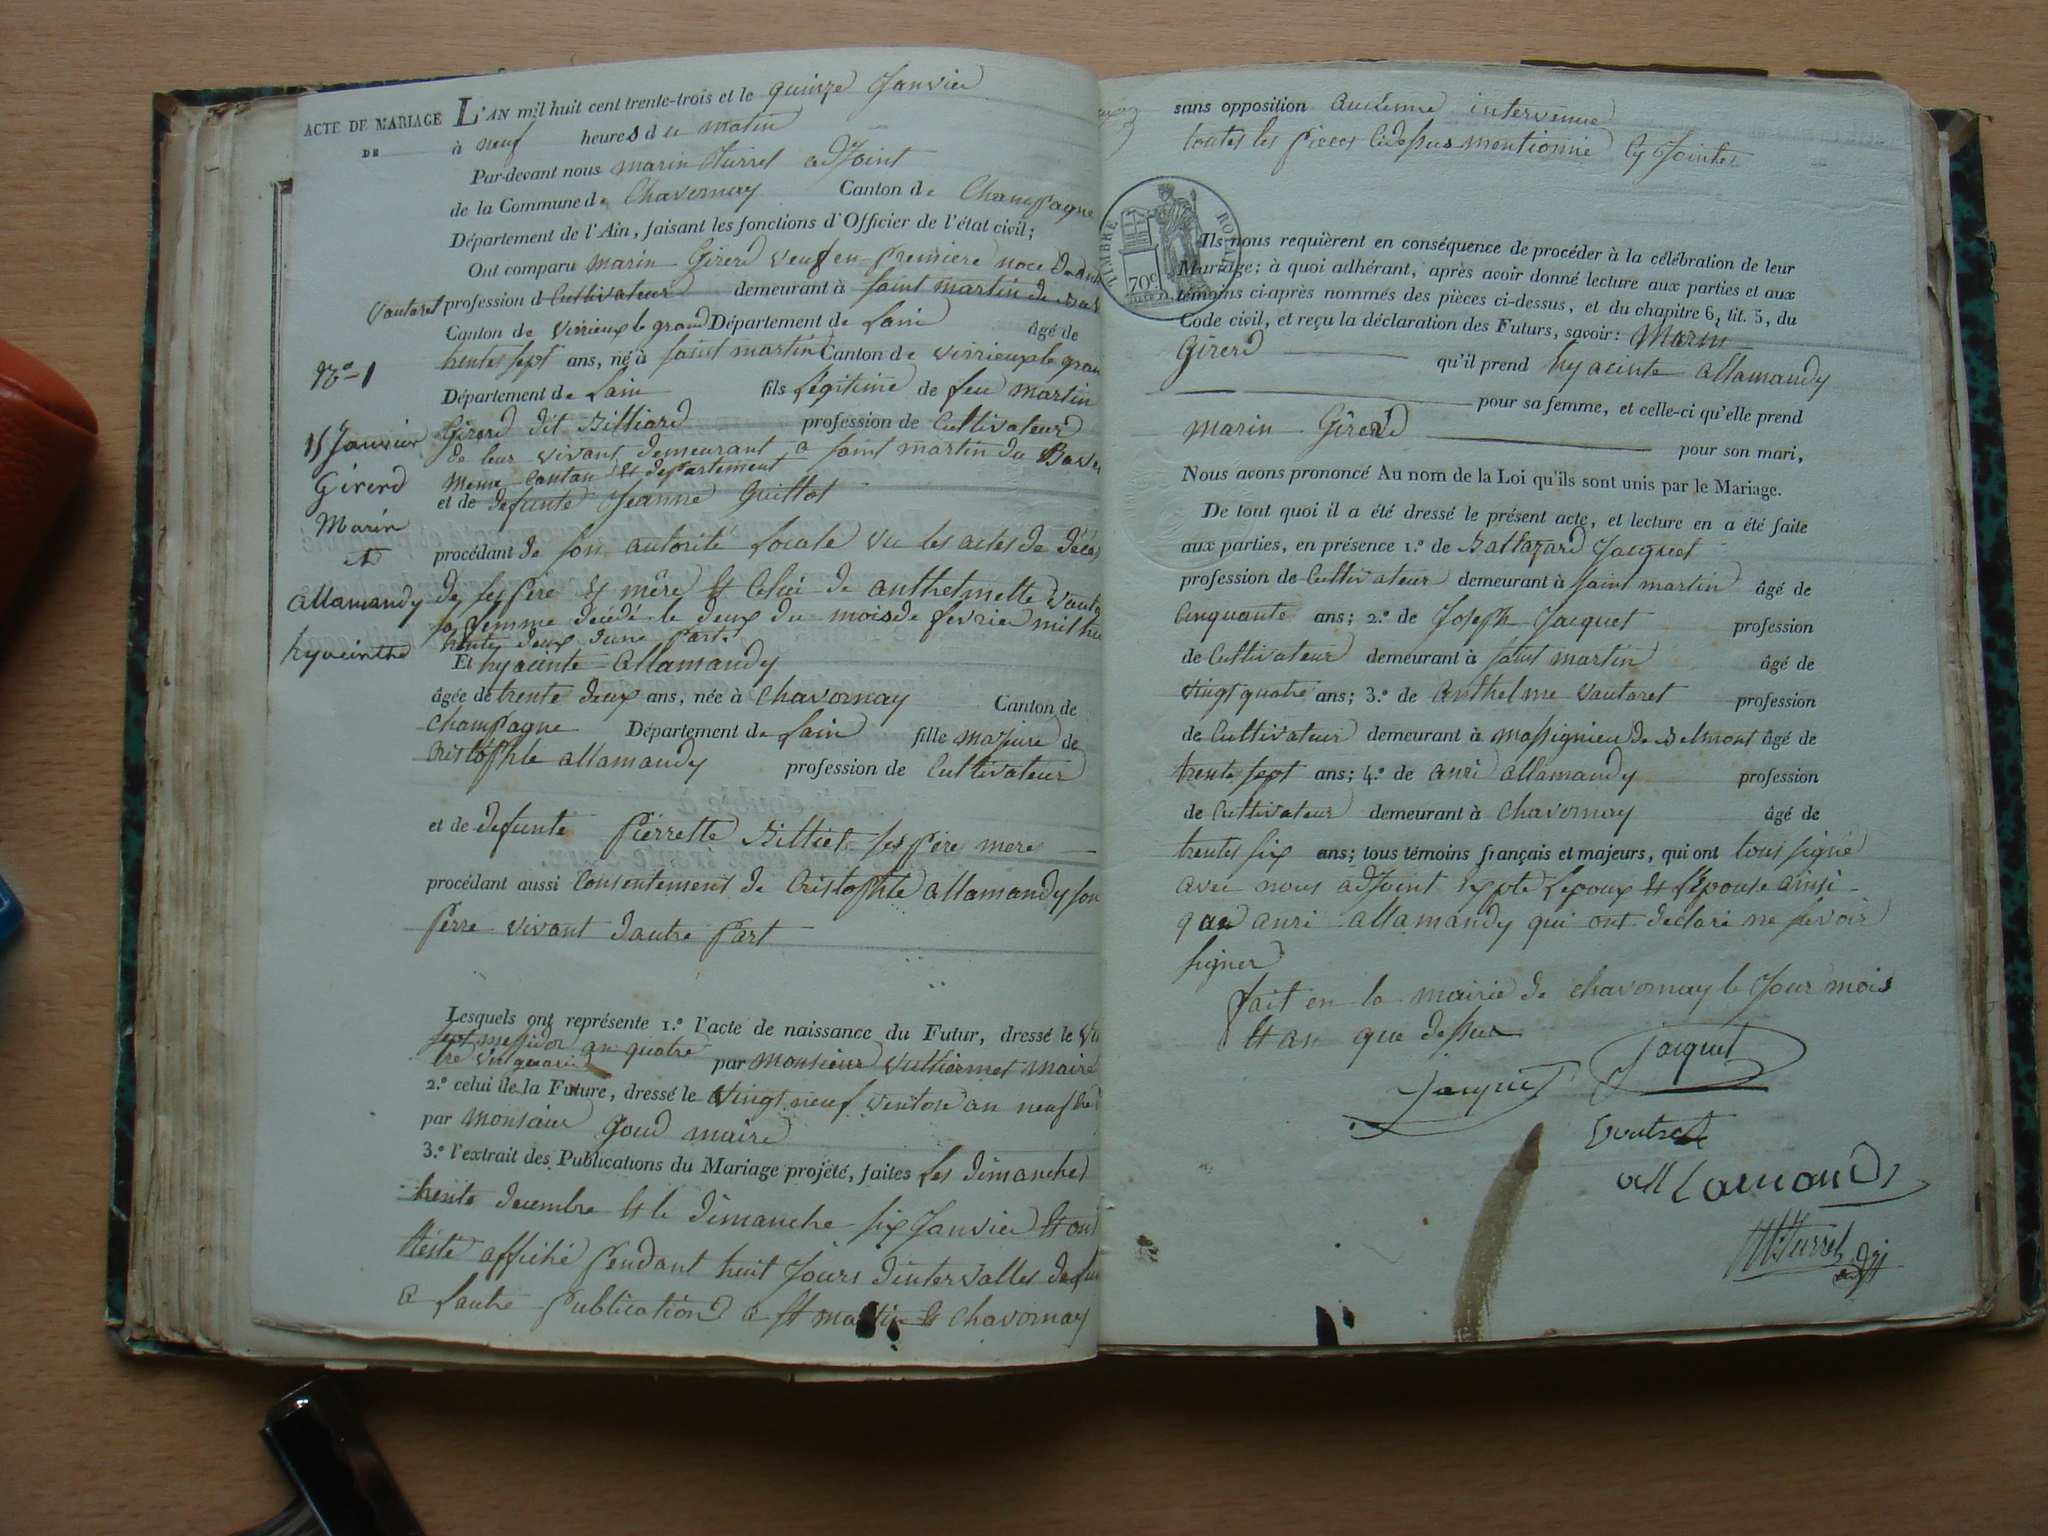 ACTE DE MARIAGE
DE
L'AN mil huit cent trente-trois et le quinze Janvier
à neuf heures du matin
Par-devant nous marin Turrel adjoint
de la Commune de Chavornay Canton de Champagne
Département de l'Ain, faisant les fonctions d'Officier de l'état civil;
Ont comparu marin Girerd veuf en première noce
Vautaret profession d Cultivateur demeurant à saint martin de
Canton de virieux le grand Département de Lain âgé de
trentes sept ans, né à saint martin Canton de virrieux le gran
Département de Lain fils Légitime de feu martin
Girerd dit Billiard profession de Cultivateur
de leur vivant demeurant a saint martin du Bave
meme Canton et département
et de defunte Jeanne Guillot
procédant de son autorité Locale vu les actes de décè
de ses père et mère et Celui de anthelmette Vauta
sa femme décédé le deux du mois de fevrier mil hu
trente deux dune part
Et hyacinte Allamandy
âgée de trente deux ans, née à Chavornay Canton de
Champagne Département de Lain fille majeure de
Cristophle allamandy profession de Cultivateur
et de defunte Pierrette Billiet ses père mere
procédant aussi Consentement de Cristophle allamandy son
Perre vivant dautre Part
Lesquels ont représenté 1.º l'acte de naissance du Futur, dressé le
sept messidor an quatre
par monsieur Vuilliermet maire
2.º celui de la Future, dressé le vingt neuf ventose an neuf
par monsieur Goud maire
3.º l'extrait des Publications du Mariage projeté, faites Les dimanche
trente decembre et le dimanche six Janvier et ont
étésté affiché Pendant huit Jours dintervalles de lu
a Lautre Publication a st martin et Chavornay
Nº 1
15 Janvier
Girerd
Marin
et
allamandy
hyacinthe
sans opposition aucienne intervenue
toutes les pieces Cidessus mentionné Cy Jointes
TIMBRE ROYAL
70c
Ils nous requièrent en conséquence de procéder à la célébration de leur
Mariage; à quoi adhérant, après avoir donné lecture aux parties et aux
témoins ci-après nommés des pièces ci-dessus, et du chapitre 6, tit. 5, du
Code civil, et reçu la déclaration des Futurs, savoir: Marin
Girerd qu'il prend hyacinte allamandy
pour sa femme, et celle-ci qu'elle prend
marin Girerd
pour son mari,
Nous avons prononcé Au nom de la Loi qu'ils sont unis par le Mariage.
De tout quoi il a été dressé le présent acte, et lecture en a été faite
aux parties, en présence 1.º de Baltazard Jacquet
profession de Cultivateur demeurant à saint martin âgé de
Cinquante ans; 2.º de Joseph Jacquet profession
de Cultivateur demeurant à saint martin âgé de
vingt quatre ans; 3.º de Anthelme Vautaret profession
de Cultivateur demeurant à massignieu de Belmont âgé de
trente sept ans; 4.º de anri allamandy profession
de Cultivateur demeurant à Chavornay âgé de
trentes six ans; tous témoins français et majeurs, qui ont tous signé
avec nous adjoint Lepoux et Lépouse ainsi
que anri allamandy qui ont declaré ne savoir
signer
fait en la mairie de chavornay le Jour mois
et an que dessus
Jacquet
Jacquet
Vautret
allamandy
M Turrel adjt